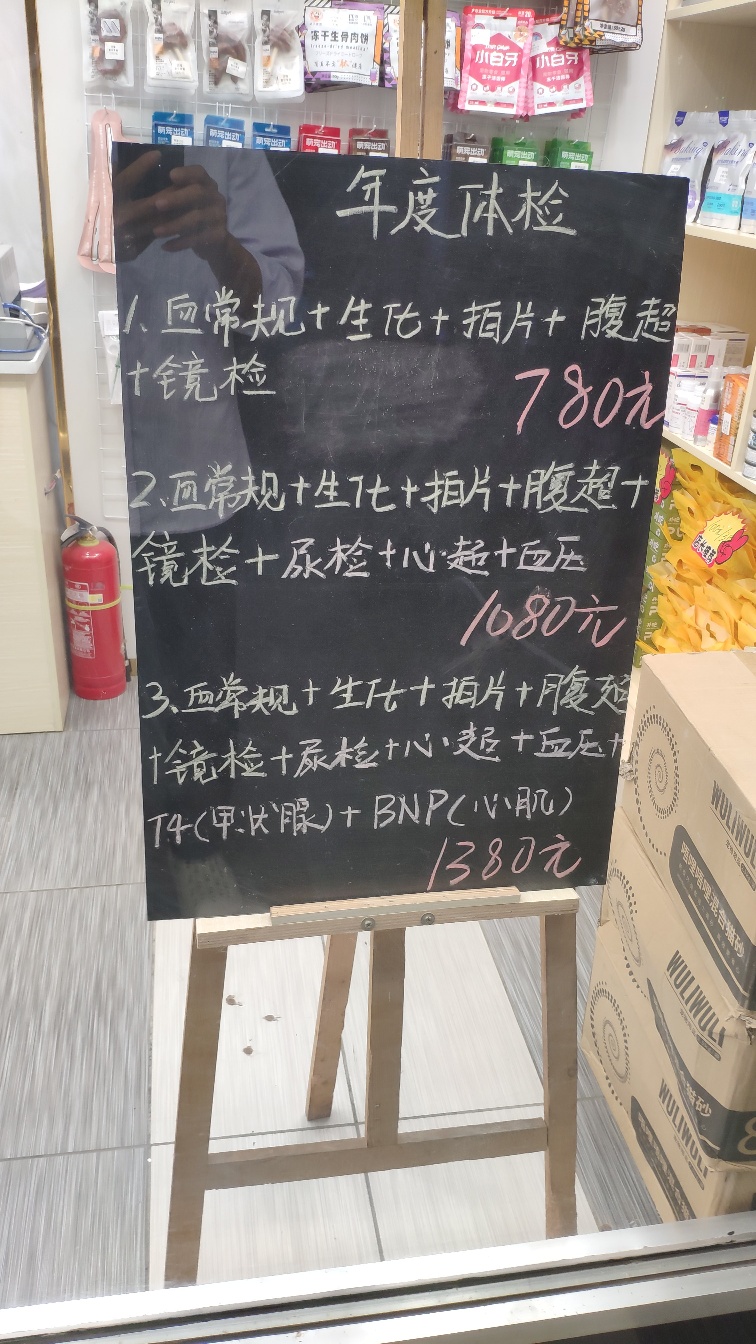 冻干生骨肉饼
小白牙
小白牙
萌宠出动
萌宠出动
萌宠出动
萌宠出动
萌宠出动
萌宠出动
萌宠出动
年度体检
1、血常规+生化+拍片+腹超
+镜检
780元
2、血常规+生化+拍片+腹超+
镜检+尿检+心超+血压
1080元
3、血常规+生化+拍片+腹超
+镜检+尿检+心超+血压+
T4(甲状腺)+BNP(心肌)
1380元
WULIWULI
WULIWULI
WULIWULI